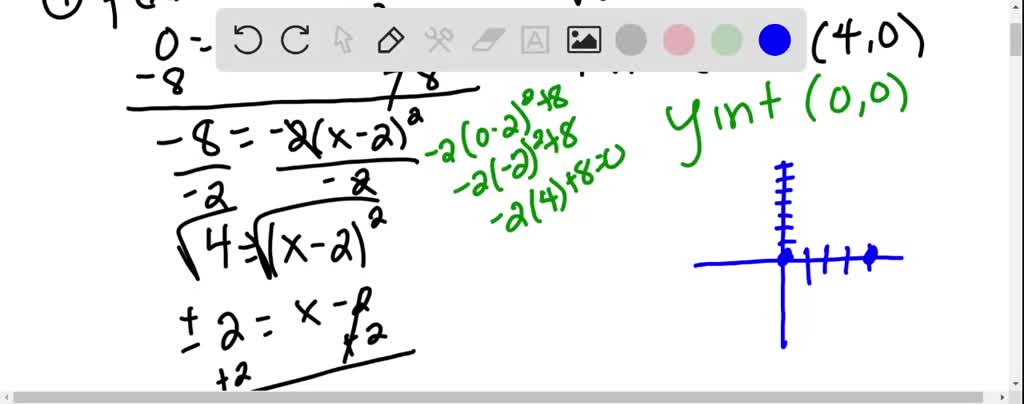 0 =
(4,0)
-8
8
y int (0,0)
-8 = -2(x-2)²
-2 -2
-2(0-2)²+8
-2(-2)²+8
-2(4)+8=0
√4=√(x-2)²
± 2 = x - 2
+2
+2
A